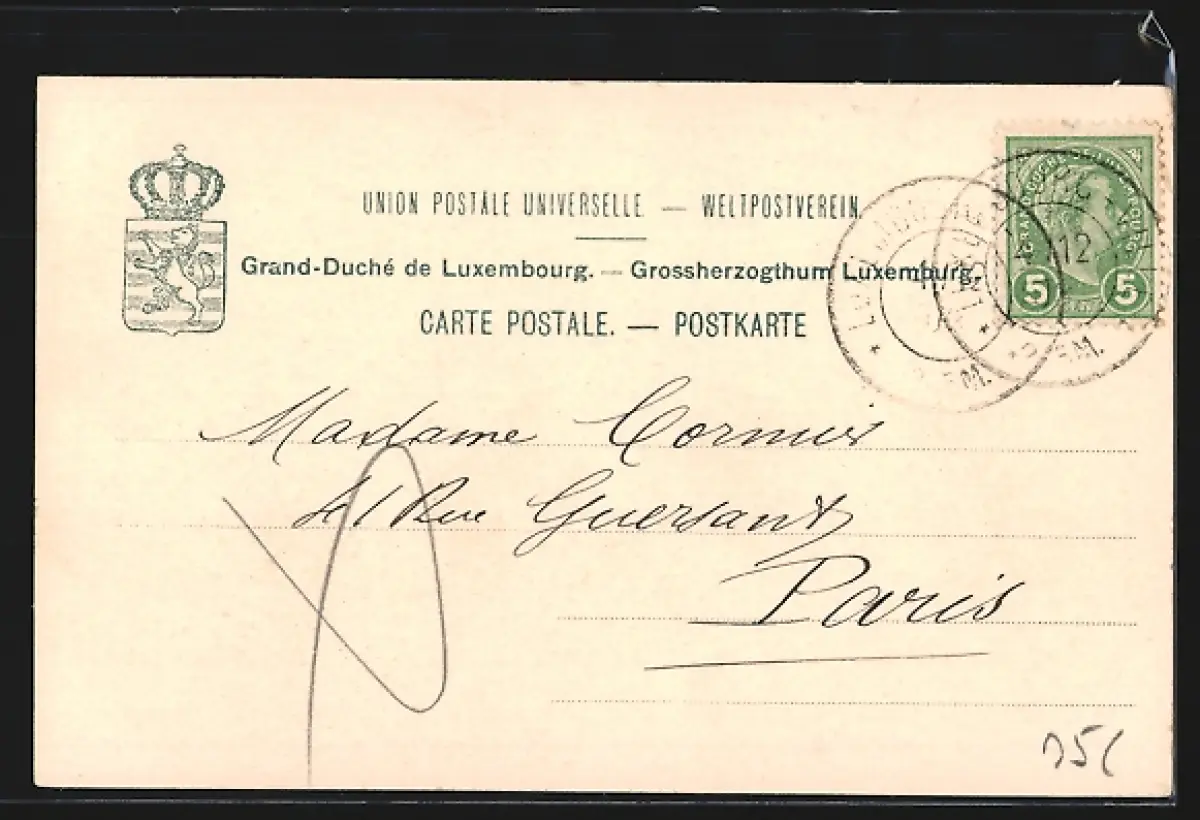 UNION POSTALE UNIVERSELLE. — WELTPOSTVEREIN
Grand-Duché de Luxembourg. — Grossherzogthum Luxemburg.
CARTE POSTALE. — POSTKARTE
5 5
12
Madame Cormier
41 Rue Guersant
Paris